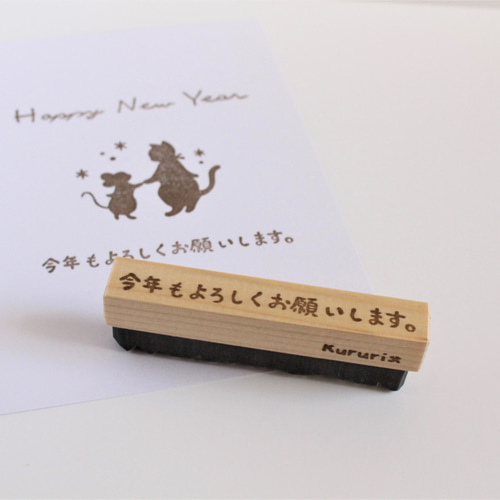 Happy New Year
今年もよろしくお願いします。
今年もよろしくお願いします。
Kururi